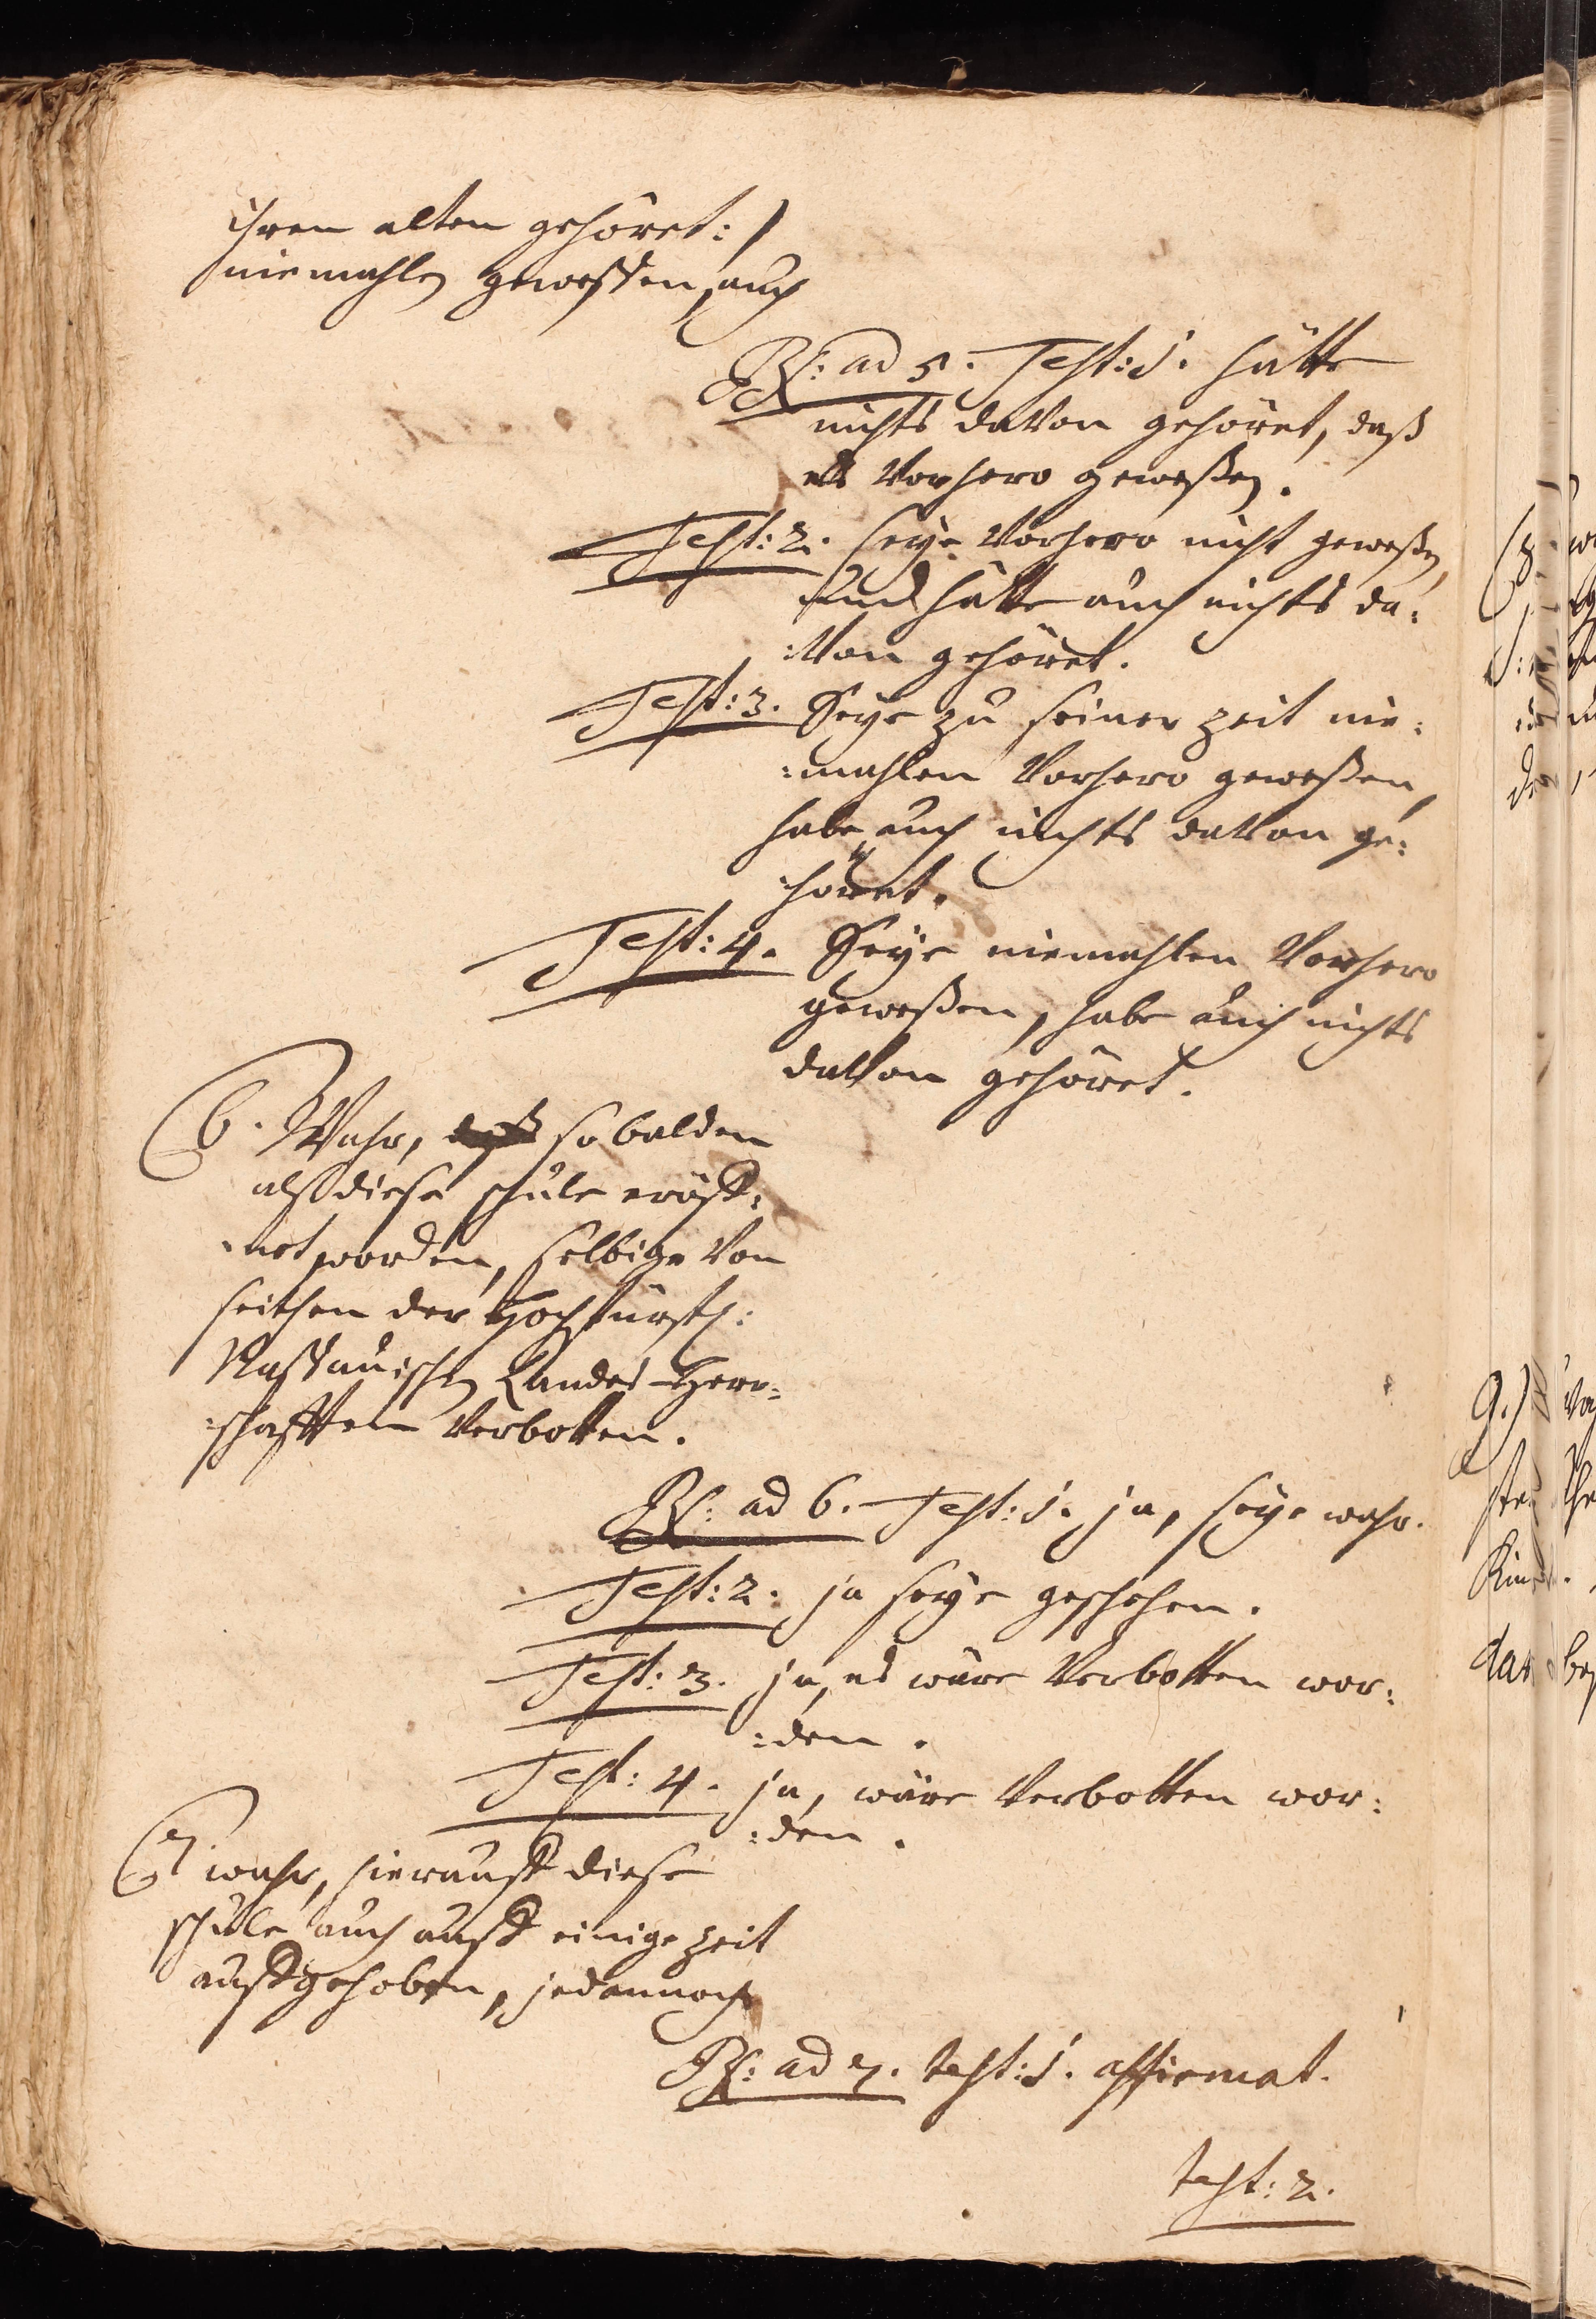 ihren alten gehöret: /
niemahlen gewesßen, auch
Rs: ad 5. Test: 1. hätte
nichts davon gehöret, daß
es Vorhero geweßen.
Test: 2. seye Vorhero nicht geweßen,
und hätte auch nichts da:
:Von gehöret.
Test: 3. Seye zu seiner zeit nie:
:mahlen Vorhero geweßen,
habe auch nichts davon ge:
:höret.
Test: 4. Seye niemahlen Vorhero
geweßen, habe auch nichts
davon gehöret.
6. Wahr, so balden
alß diese schule eröff:
:net worden, selbige Von
seithen der Hochfürstl:
Nassauischen Landes-Herr:
:schafften Verbotten.
Rs: ad 6. Test: 1. ja, seye wahr.
Test: 2. ja seye geschehen.
Test: 3. ja, es wäre Verbotten wor:
:den.
Test: 4. ja, wäre Verbotten wor:
:den.
7. wahr, hierauff diese
schule auch auff einige zeit
auffgehoben, jedannoch
Rs: ad 7. test: 1. affirmat.
test: 2.